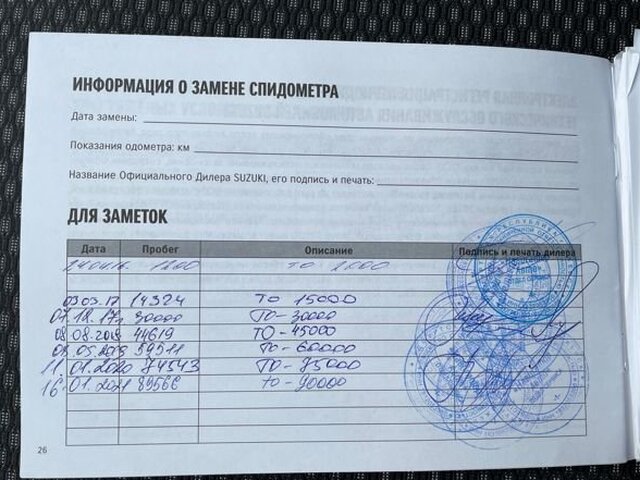 ИНФОРМАЦИЯ О ЗАМЕНЕ СПИДОМЕТРА
Дата замены:
Показания одометра: км
Название Официального Дилера SUZUKI, его подпись и печать:
ДЛЯ ЗАМЕТОК
Дата Пробег Описание Подпись и печать дилера
ТО
03.03.17 14324 ТО 15000
12.17 30000 ТО-30000
08.08. 44619 ТО-45000
05.2019 59511 ТО-60000
11.01.2020 74543 ТО-75000
16.01.2021 89566 ТО-90000
26